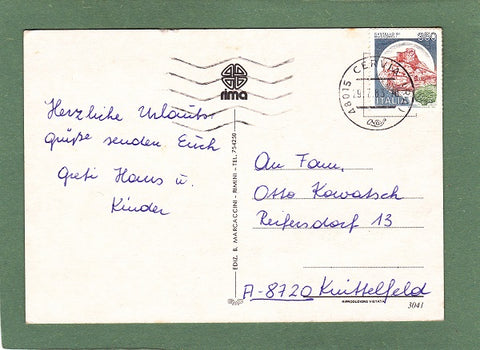 Herzliche Urlaubs-
grüße senden Euch
Greti Hans u.
Kinder
rima
EDIZ. B. MARCACCINI - RIMINI - TEL. 754250
350
ITALIA
48015 CERVIA (RA)
An Fam.
Otto Kowatsch
Reifersdorf 13
A-8720 Knittelfeld
3041